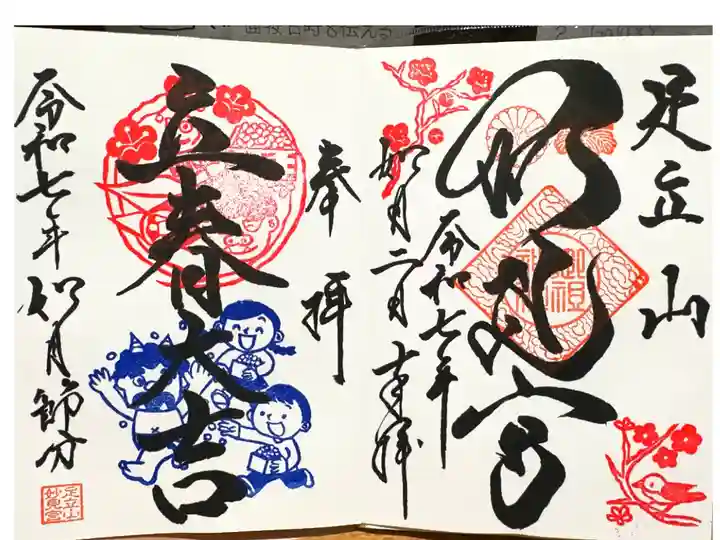 足立山
妙見宮
御祖
令和七年
如月二日
奉拝
奉拝
立春大吉
令和七年如月節分
足立山
妙見宮